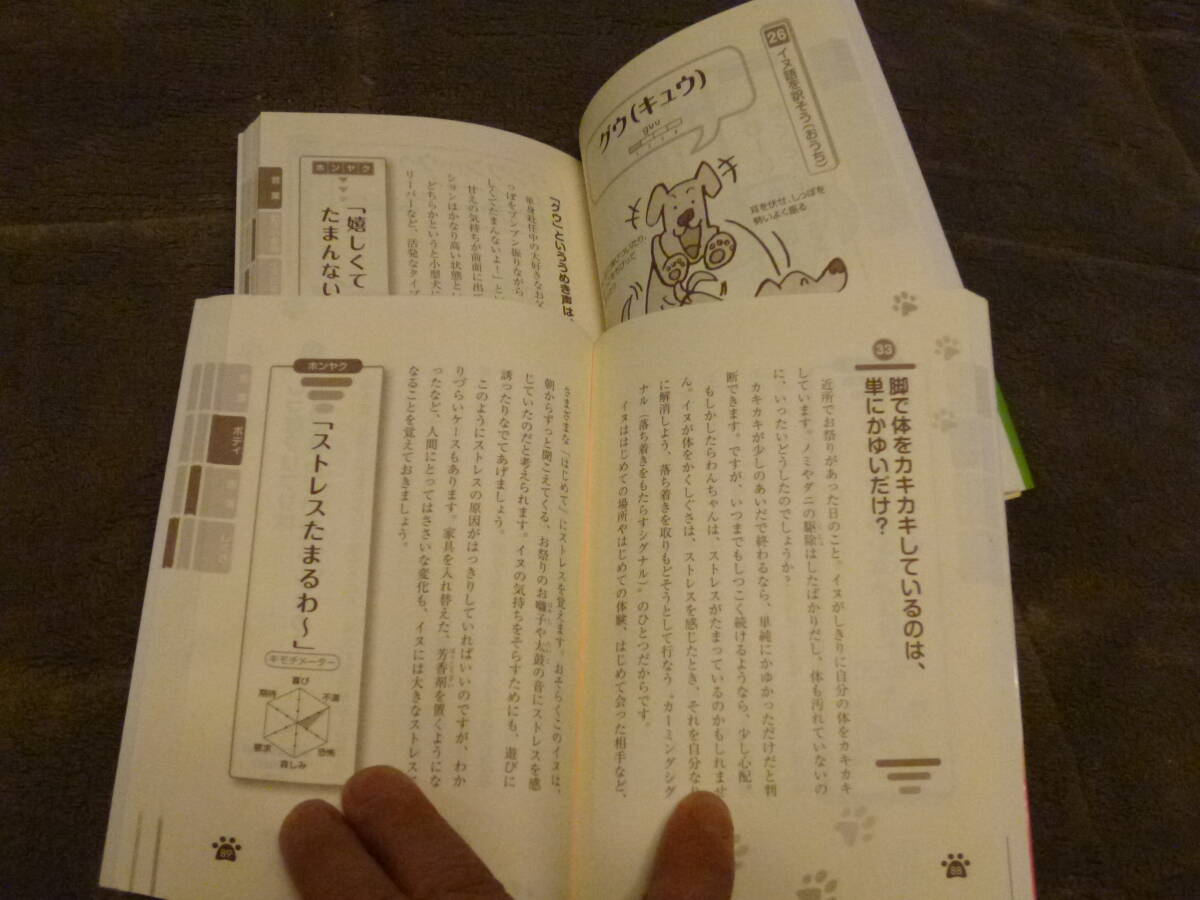 26
イヌ語を訳そう(おうち)
グウ(キュウ)
guu
耳を伏せ、しっぽを
勢いよく振る
「グウ」といううめき声は、
単身赴任中の大好きなお父
っぽをブンブン振りながら
してたまんないよ!」とい
甘えの気持ちが前面に出て
ションはかなり高い状態とい
どちらかというと小型犬に
リーバーなど、活発なタイプ
ホンヤク
「嬉しくて
たまんない
33
脚で体をカキカキしているのは、
単にかゆいだけ?
近所でお祭りがあった日のこと。イヌがしきりに自分の体をカキカキ
しています。ノミやダニの駆除はしたばかりだし、体も汚れていないの
に、いったいどうしたのでしょうか?
カキカキが少しのあいだで終わるなら、単純にかゆかっただけだと判
断できます。ですが、いつまでもしつこく続けるようなら、少し心配。
もしかしたらわんちゃんは、ストレスがたまっているのかもしれませ
ん。イヌが体をかくしぐさは、ストレスを感じたとき、それを自分なり
に解消しよう、落ち着きを取りもどそうとして行なう〝カーミングシグ
ナル(落ち着きをもたらすシグナル)〟のひとつだからです。
イヌははじめての場所やはじめての体験、はじめて会った相手など、
さまざまな「はじめて」にストレスを覚えます。おそらくこのイヌは、
朝からずっと聞こえてくる、お祭りのお囃子や太鼓の音にストレスを感
じていたのだと考えられます。イヌの気持ちをそらすためにも、遊びに
誘ったりなでてあげましょう。
このようにストレスの原因がはっきりしていればいいのですが、わか
りづらいケースもあります。家具を入れ替えた、芳香剤を置くようにな
ったなど、人間にとってはささいな変化も、イヌには大きなストレスに
なることを覚えておきましょう。
ホンヤク
「ストレスたまるわ〜」
キモチメーター
喜び
不満
恐怖
哀しみ
要求
期待
ボディ
88
89